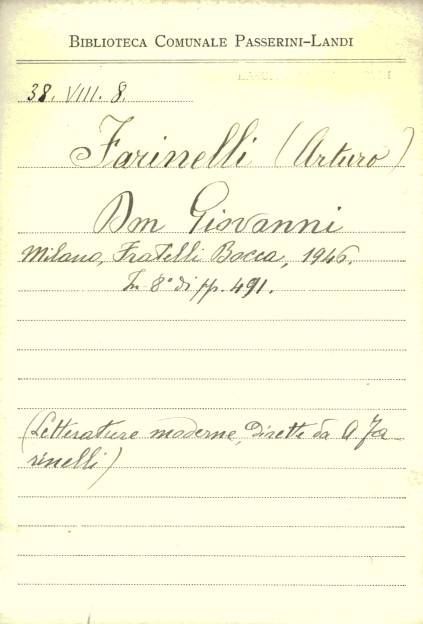 BIBLIOTECA COMUNALE PASSERINI-LANDI
38. VIII. 8.
Farinelli (Arturo)
Don Giovanni
Milano, Fratelli Bocca, 1946.
In 8° di pp. 491.
(Letterature moderne, dirette da A Fa
rinelli)